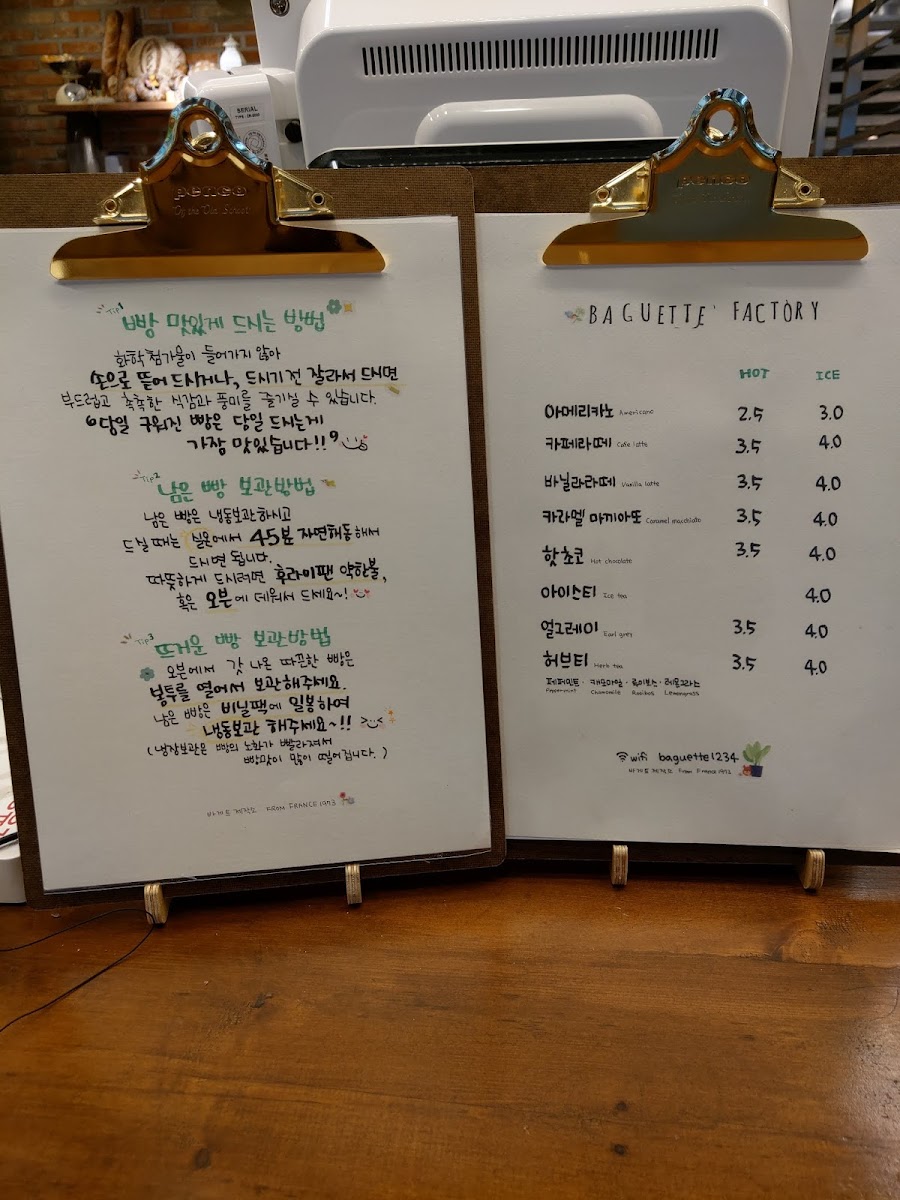 BERIAL
pense
pense
Tip1
빵 맛있게 드시는 방법
화학첨가물이 들어가지 않아
손으로 뜯어 드시거나, 드시기 전 갈라서 드시면
부드럽고 촉촉한 식감과 풍미를 즐기실 수 있습니다.
"당일 구워진 빵은 당일 드시는게
가장 맛있습니다!!"
Tip2
남은 빵 보관방법
남은 빵은 냉동보관하시고
드실 때는 실온에서 45분 자연해동해서
드시면 됩니다.
따뜻하게 드시려면 후라이팬 약한불,
혹은 오븐에 데워서 드세요~!
Tip3
뜨거운 빵 보관방법
오븐에서 갓 나온 따끈한 빵은
봉투를 열어서 보관해주세요.
남은 빵은 비닐팩에 밀봉하여
냉동보관 해주세요~!!
(냉장보관은 빵의 노화가 빨라져서
빵맛이 많이 떨어집니다.)
바게트 제작소 FROM FRANCE 1973
BAGUETTE FACTORY
HOT ICE
아메리카노 Americano 2.5 3.0
카페라떼 Cafe latte 3.5 4.0
바닐라라떼 Vanilla latte 3.5 4.0
카라멜 마끼아또 Caramel macchiato 3.5 4.0
핫초코 Hot chocolate 3.5 4.0
아이스티 Ice tea 4.0
얼그레이 Earl grey 3.5 4.0
허브티 Herb tea 3.5 4.0
페퍼민트 · 캐모마일 · 루이보스 · 레몬그라스
Peppermint Chamomile Rooibos Lemongrass
wifi baguette1234
바게트 제작소 From France 1973